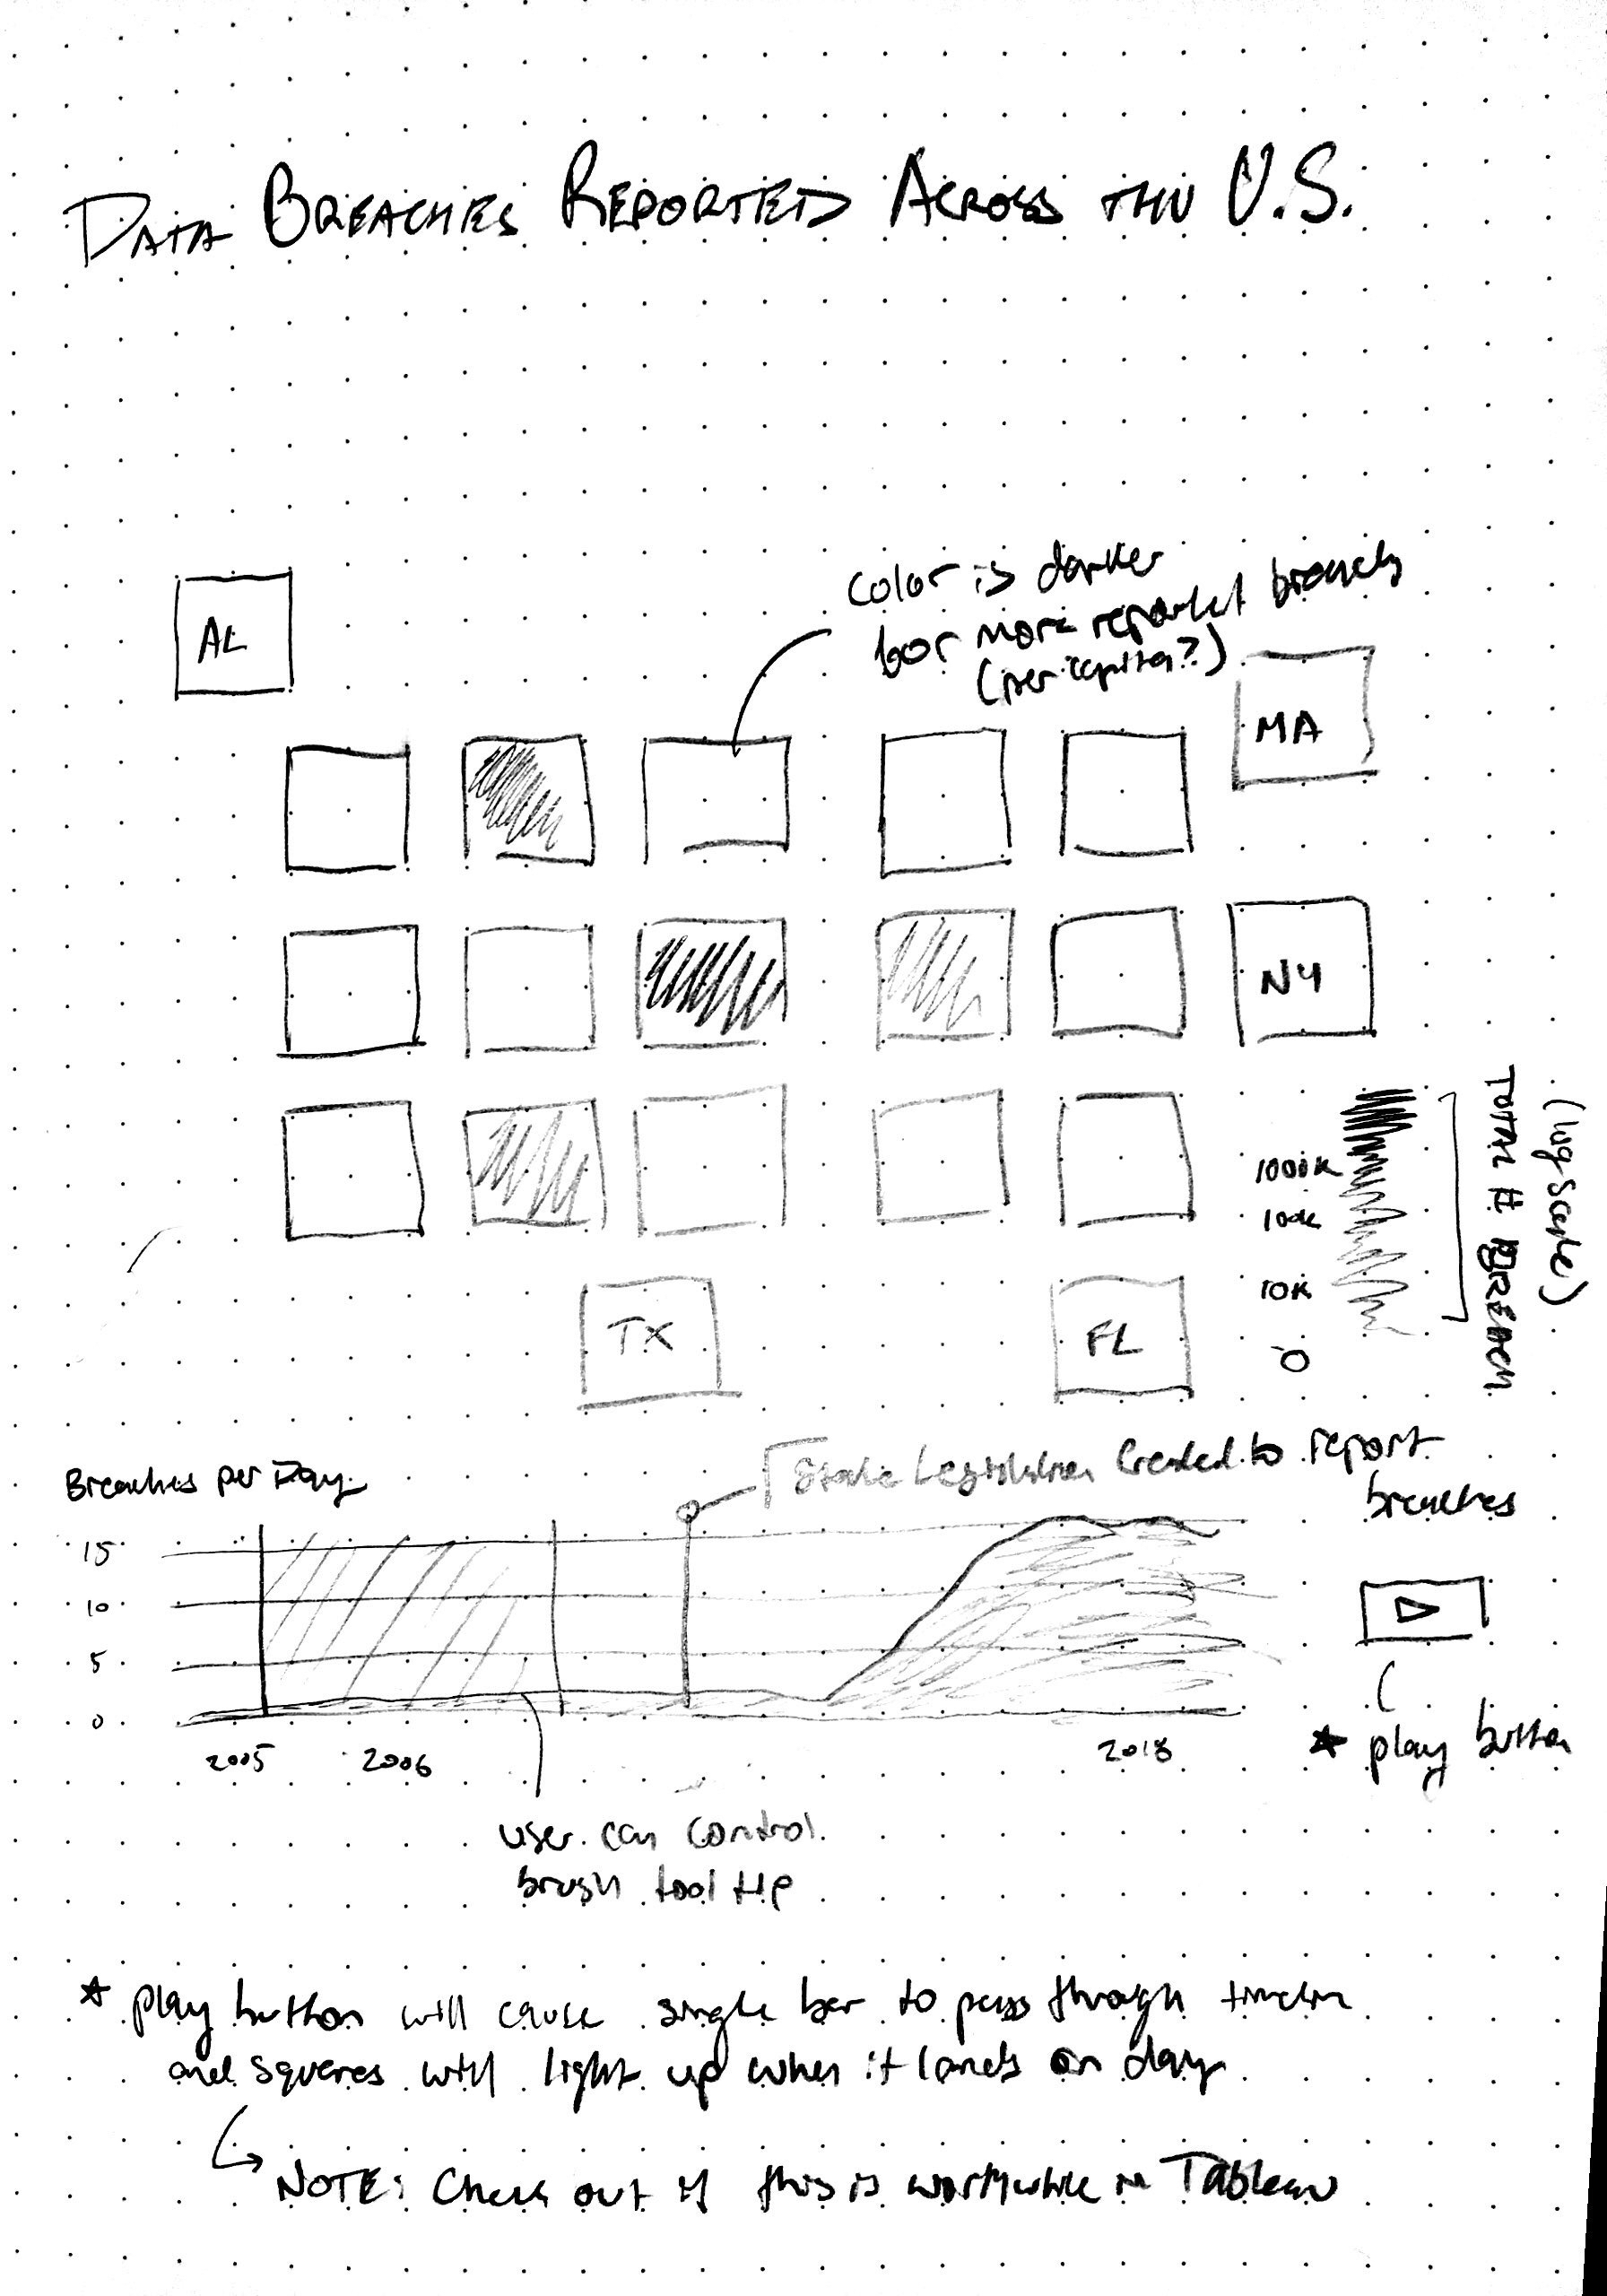 DATA BREACHES REPORTED ACROSS THE U.S.
AL
color is darker
for more reported breaches
(per capita?)
MA
NY
TX
FL
1000K
100k
10K
0
TOTAL # BREACH
(log scale)
Breaches per Day
15
10
5
0
State Legislation created to report
breaches
2005
2006
2018
★ play button
user can control
brush tool tip
★ play button will cause single bar to pass through timeline
and squares will light up when it lands on day
NOTE: Check out if this is worthwhile in Tableau